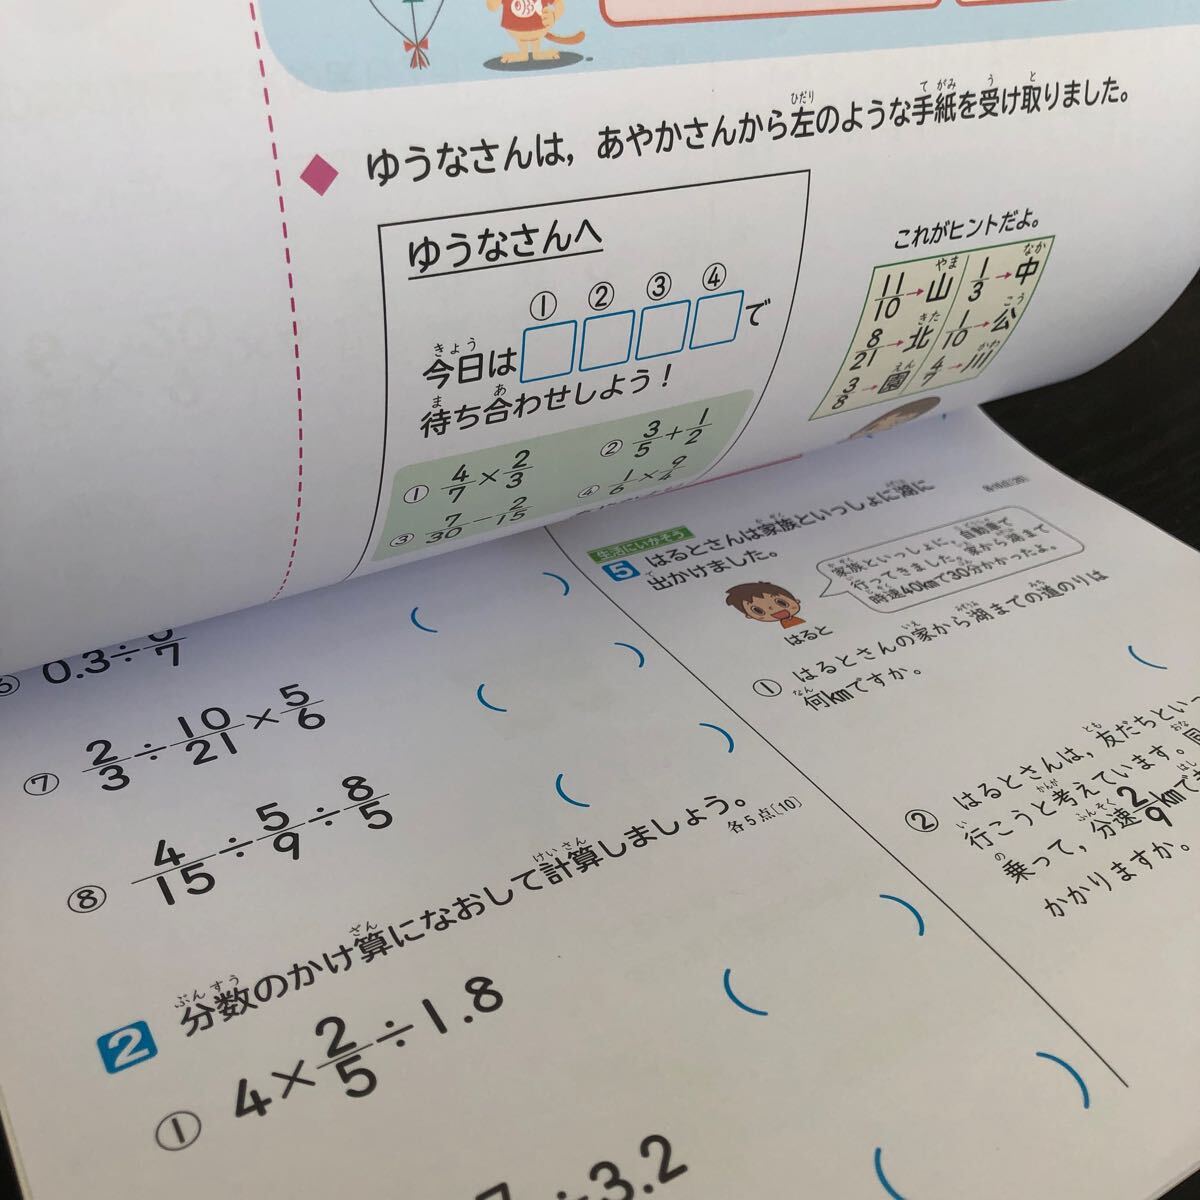 ゆうなさんは，あやかさんから左のような手紙を受け取りました。
ゆうなさんへ
① ② ③ ④
今日は□□□□で
待ち合わせしよう！
① 4/7 × 2/3
② 3/5 + 1/2
③ 7/30 − 2/15
④ 1/6 × 9/4
これがヒントだよ。
11/10→山 1/3→中
8/21→北 1/10→公
3/8→園 4/7→川
0.3÷
⑦ 2/3 ÷ 10/21 × 5/6
⑧ 4/15 ÷ 5/9 ÷ 8/5
2 分数のかけ算になおして計算しましょう。
各5点〔10〕
① 4×2/5÷1.8
÷3.2
生活にいかそう
5 はるとさんは家族といっしょに湖に
出かけました。
家族といっしょに，自動車で
行ってきました。家から湖まで
時速40kmで30分かかったよ。
はると
① はるとさんの家から湖までの道のりは
何kmですか。
② はるとさんは，友だちといっ
行こうと考えています。
乗って，分速2/9kmで
かかりますか。